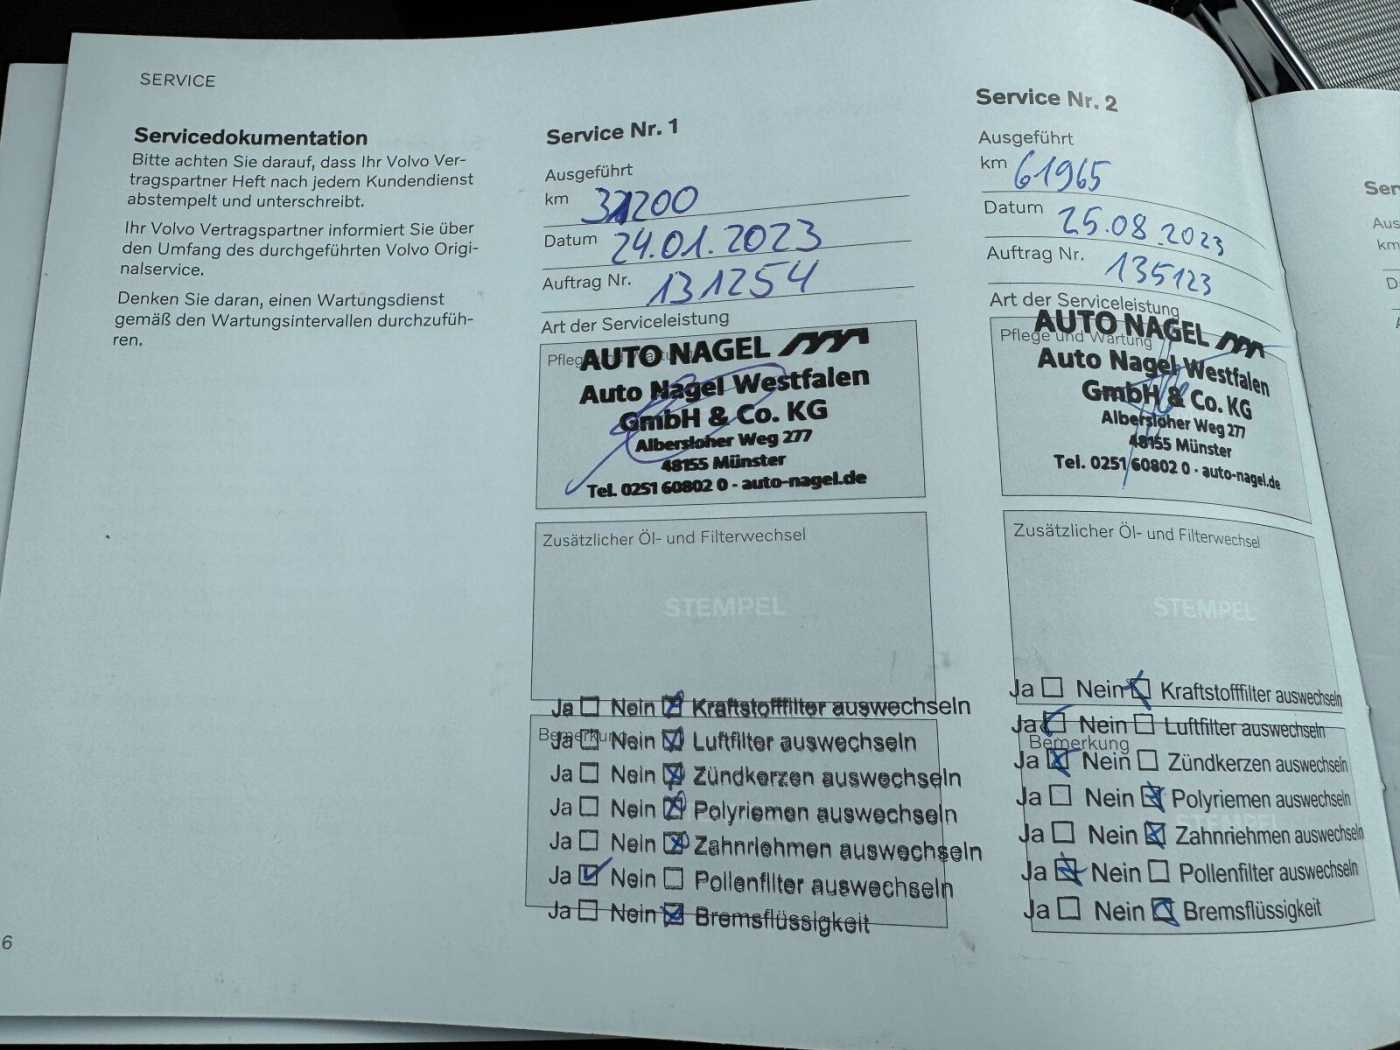 SERVICE
Servicedokumentation
Bitte achten Sie darauf, dass Ihr Volvo Ver-
tragspartner Heft nach jedem Kundendienst
abstempelt und unterschreibt.
Ihr Volvo Vertragspartner informiert Sie über
den Umfang des durchgeführten Volvo Origi-
nalservice.
Denken Sie daran, einen Wartungsdienst
gemäß den Wartungsintervallen durchzufüh-
ren.
6
Service Nr. 1
Ausgeführt
km 31200
Datum 24.01.2023
Auftrag Nr. 131254
Art der Serviceleistung
AUTO NAGEL
Auto Nagel Westfalen
GmbH & Co. KG
Albersloher Weg 277
48155 Münster
Tel. 0251 60802 0 - auto-nagel.de
Zusätzlicher Öl- und Filterwechsel
STEMPEL
Ja Nein Kraftstofffilter auswechseln
Bemerkung
Ja Nein Luftfilter auswechseln
Ja Nein Zündkerzen auswechseln
Ja Nein Polyriemen auswechseln
Ja Nein Zahnriehmen auswechseln
Ja Nein Pollenfilter auswechseln
Ja Nein Bremsflüssigkeit
Service Nr. 2
Ausgeführt
km 61965
Datum 25.08.2023
Auftrag Nr. 135123
Art der Serviceleistung
AUTO NAGEL
Pflege und Wartung
Auto Nagel Westfalen
GmbH & Co. KG
Albersloher Weg 277
48155 Münster
Tel. 0251 60802 0 - auto-nagel.de
Zusätzlicher Öl- und Filterwechsel
STEMPEL
Ja Nein Kraftstofffilter auswechseln
Ja Nein Luftfilter auswechseln
Bemerkung
Ja Nein Zündkerzen auswechseln
Ja Nein Polyriemen auswechseln
STEMPEL
Ja Nein Zahnriehmen auswechseln
Ja Nein Pollenfilter auswechseln
Ja Nein Bremsflüssigkeit
Ser
Aus
km